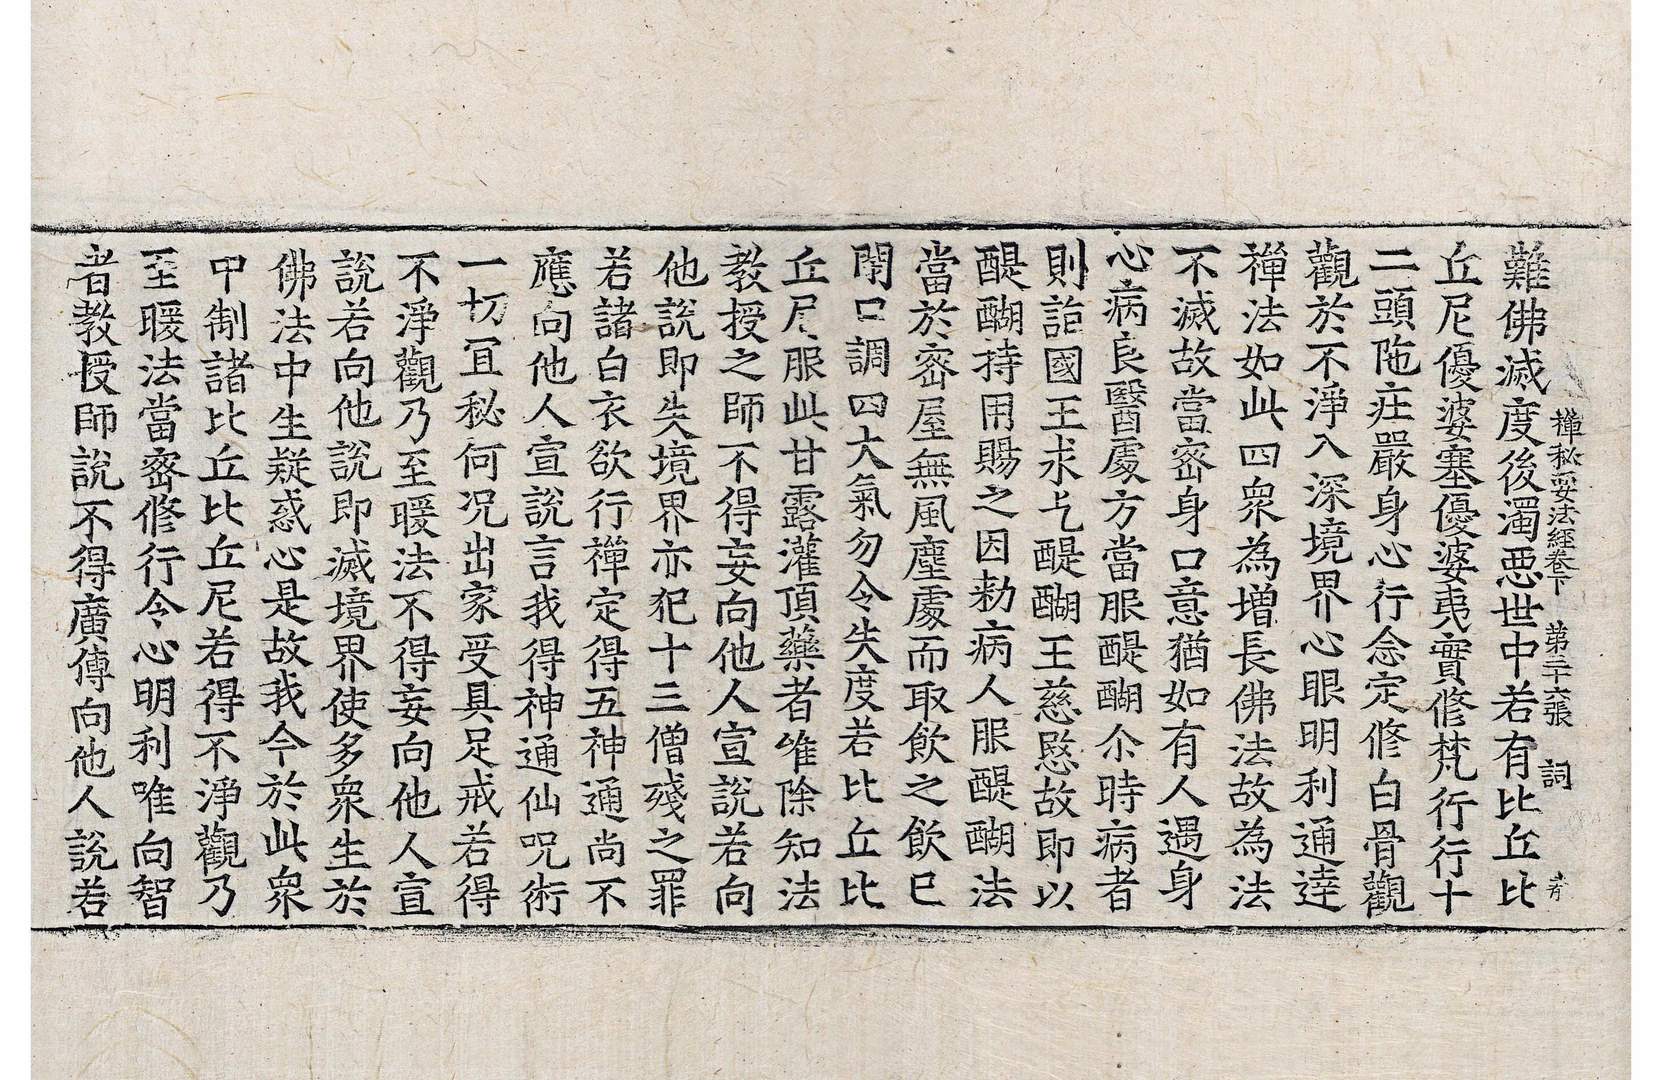 禪秘要法經卷下　第三十六張　詞
難佛滅度後濁惡世中若有比丘比
丘尼優婆塞優婆夷實修梵行行十
二頭陁莊嚴身心行念定修白骨觀
觀於不淨入深境界心眼明利通達
禪法如此四衆為增長佛法故為法
不滅故當密身口意猶如有人遇身
心病良醫處方當服醍醐尒時病者
則詣國王求乞醍醐王慈愍故即以
醍醐持用賜之因勑病人服醍醐法
當於密屋無風塵處而取飲之飲已
閇口調四大氣勿令失度若比丘比
丘尼服此甘露灌頂藥者唯除知法
教授之師不得妄向他人宣說若向
他說即失境界亦犯十三僧殘之罪
若諸白衣欲行禪定得五神通尚不
應向他人宣說言我得神通仙呪術
一切冝秘何況出家受具足戒若得
不淨觀乃至暖法不得妄向他人宣
說若向他說即滅境界使多衆生於
佛法中生疑惑心是故我今於此衆
中制諸比丘比丘尼若得不淨觀乃
至暖法當密修行令心明利唯向智
者教授師說不得廣傳向他人說若